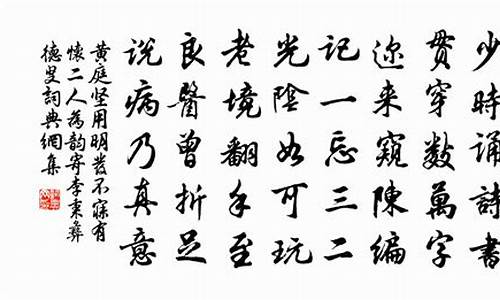 少時誦詩書
貫穿數萬字
迩来窺陳編
記一忘三二
光陰如可玩
老境翻手至
良醫曾折足
说病乃真意
黄庭坚用明发不寐有
懷二人為韵寄李秉彝
德叟詞典網集